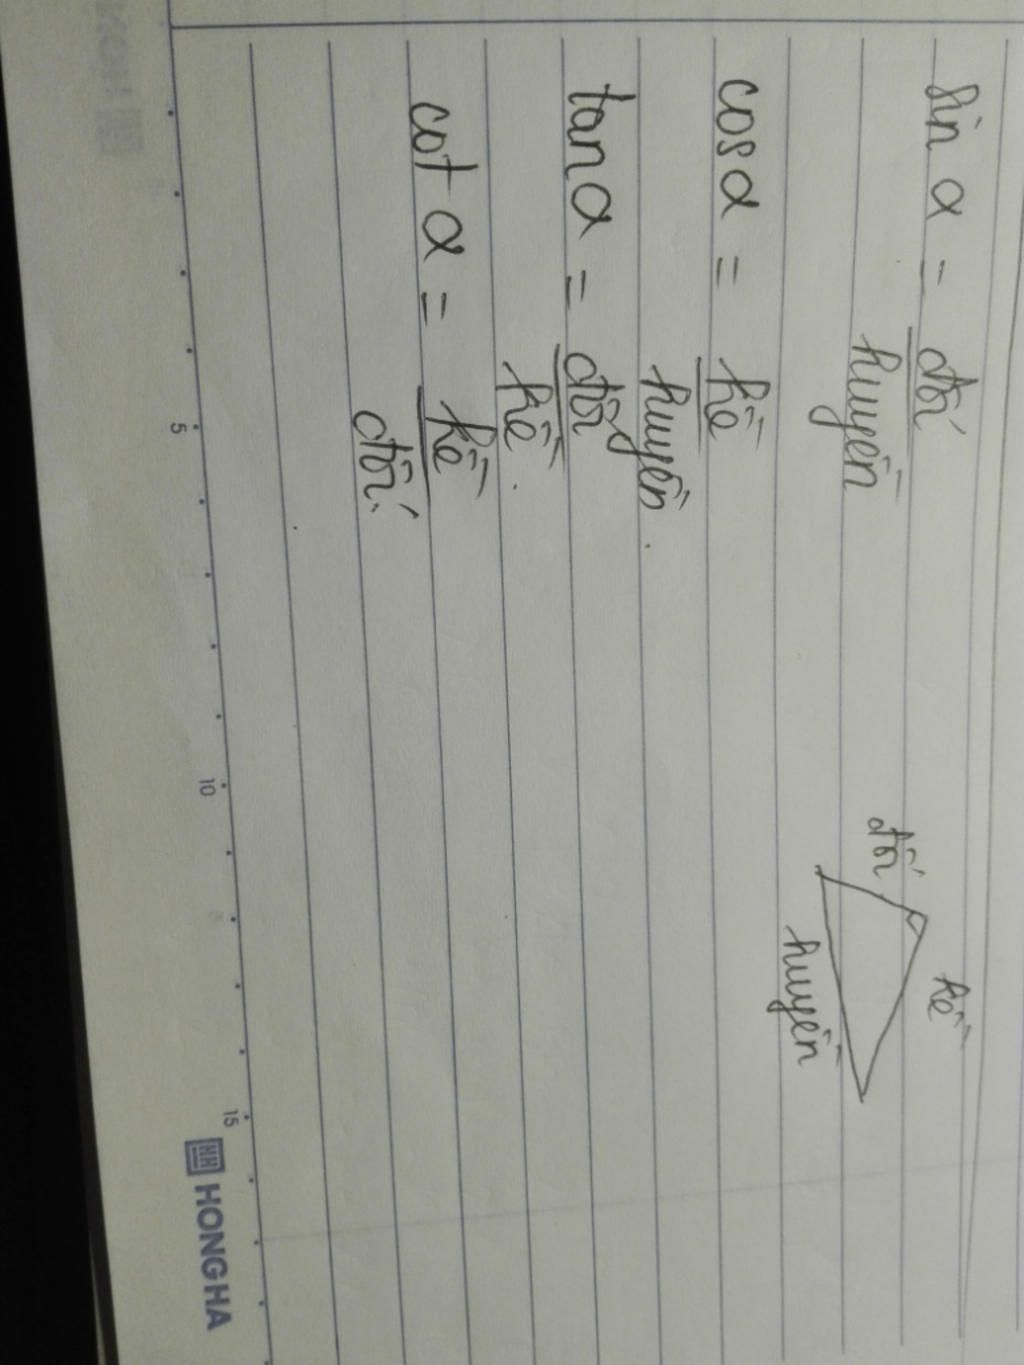 sin α = đối
huyền
cos α = kề
huyền.
tan α = đối
kề.
cot α = kề
đối.
đối
kề
huyền
5
10
15
HONG HA